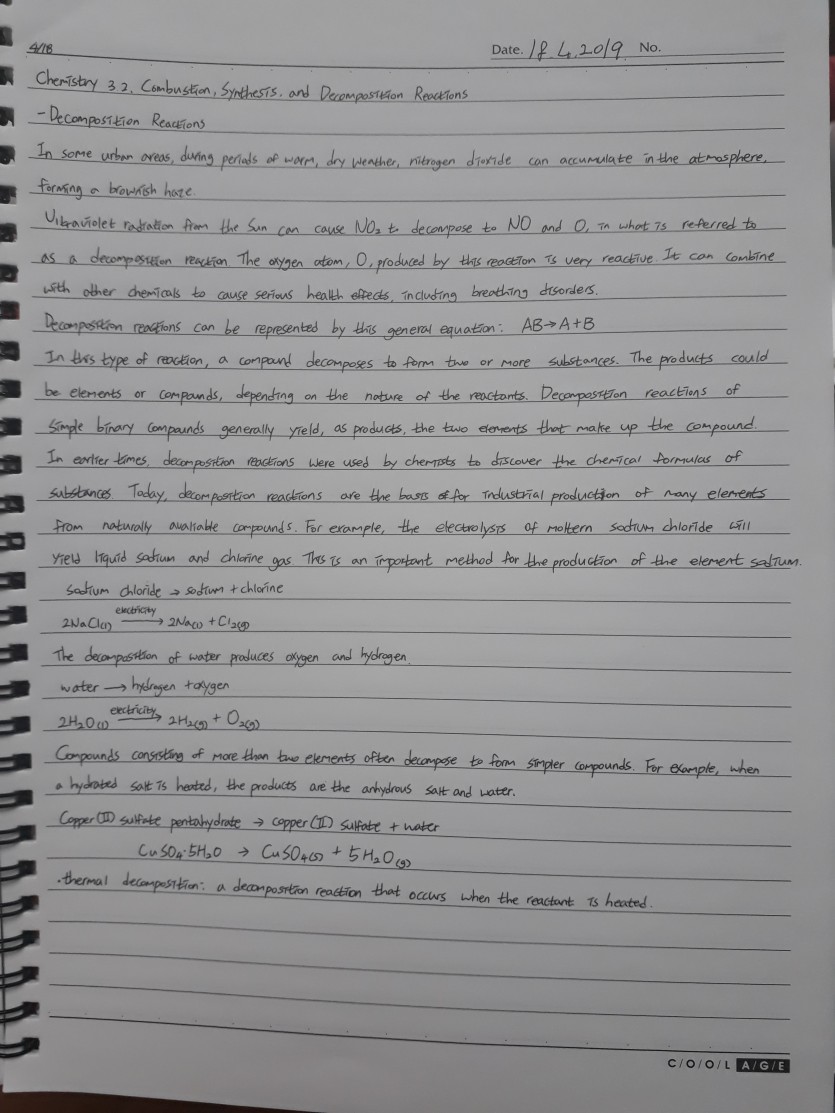 4/18
Date. 18. 4. 2019 No.
Chemistry 3.2. Combustion, Synthesis, and Decomposition Reactions
- Decomposition Reactions
In some urban areas, during periods of warm, dry weather, nitrogen dioxide can accumulate in the atmosphere,
forming a brownish haze.
Ultraviolet radiation from the Sun can cause NO₂ to decompose to NO and O, in what is referred to
as a decomposition reaction. The oxygen atom, O, produced by this reaction is very reactive. It can combine
with other chemicals to cause serious health effects, including breathing disorders.
Decomposition reactions can be represented by this general equation: AB→A+B
In this type of reaction, a compound decomposes to form two or more substances. The products could
be elements or compounds, depending on the nature of the reactants. Decomposition reactions of
simple binary compounds generally yield, as products, the two elements that make up the compound.
In earlier times, decomposition reactions were used by chemists to discover the chemical formulas of
substances. Today, decomposition reactions are the basis for industrial production of many elements
from naturally avaliable compounds. For example, the electrolysis of moltern sodium chloride will
yield liquid sodium and chlorine gas. This is an important method for the production of the element sodium.
sodium chloride → sodium + chlorine
electricity
2NaCl(l) → 2Na(l) + Cl₂(g)
The decomposition of water produces oxygen and hydrogen.
water → hydrogen + oxygen
electricity
2H₂O(l) → 2H₂(g) + O₂(g)
Compounds consisting of more than two elements often decompose to form simpler compounds. For example, when
a hydrated salt is heated, the products are the anhydrous salt and water.
Copper(II) sulfate pentahydrate → copper(II) sulfate + water
CuSO₄·5H₂O → CuSO₄(s) + 5H₂O(g)
·thermal decomposition: a decomposition reaction that occurs when the reactant is heated.
C/O/O/L A/G/E